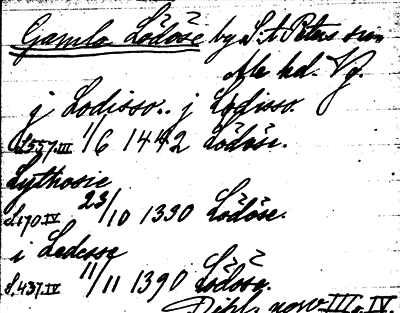 Gamla Lödöse by S:t Peters sn
Ale hd. Vg.
j Lodisso.. j Lodisso.
1/6 1442 Lödöse.
Lythosie
s.170.IV 23/10 1390 Lödöse.
i Ledesse
s.437.IV 11/11 1390 Lödöse.
Dipl. nov III o. IV.